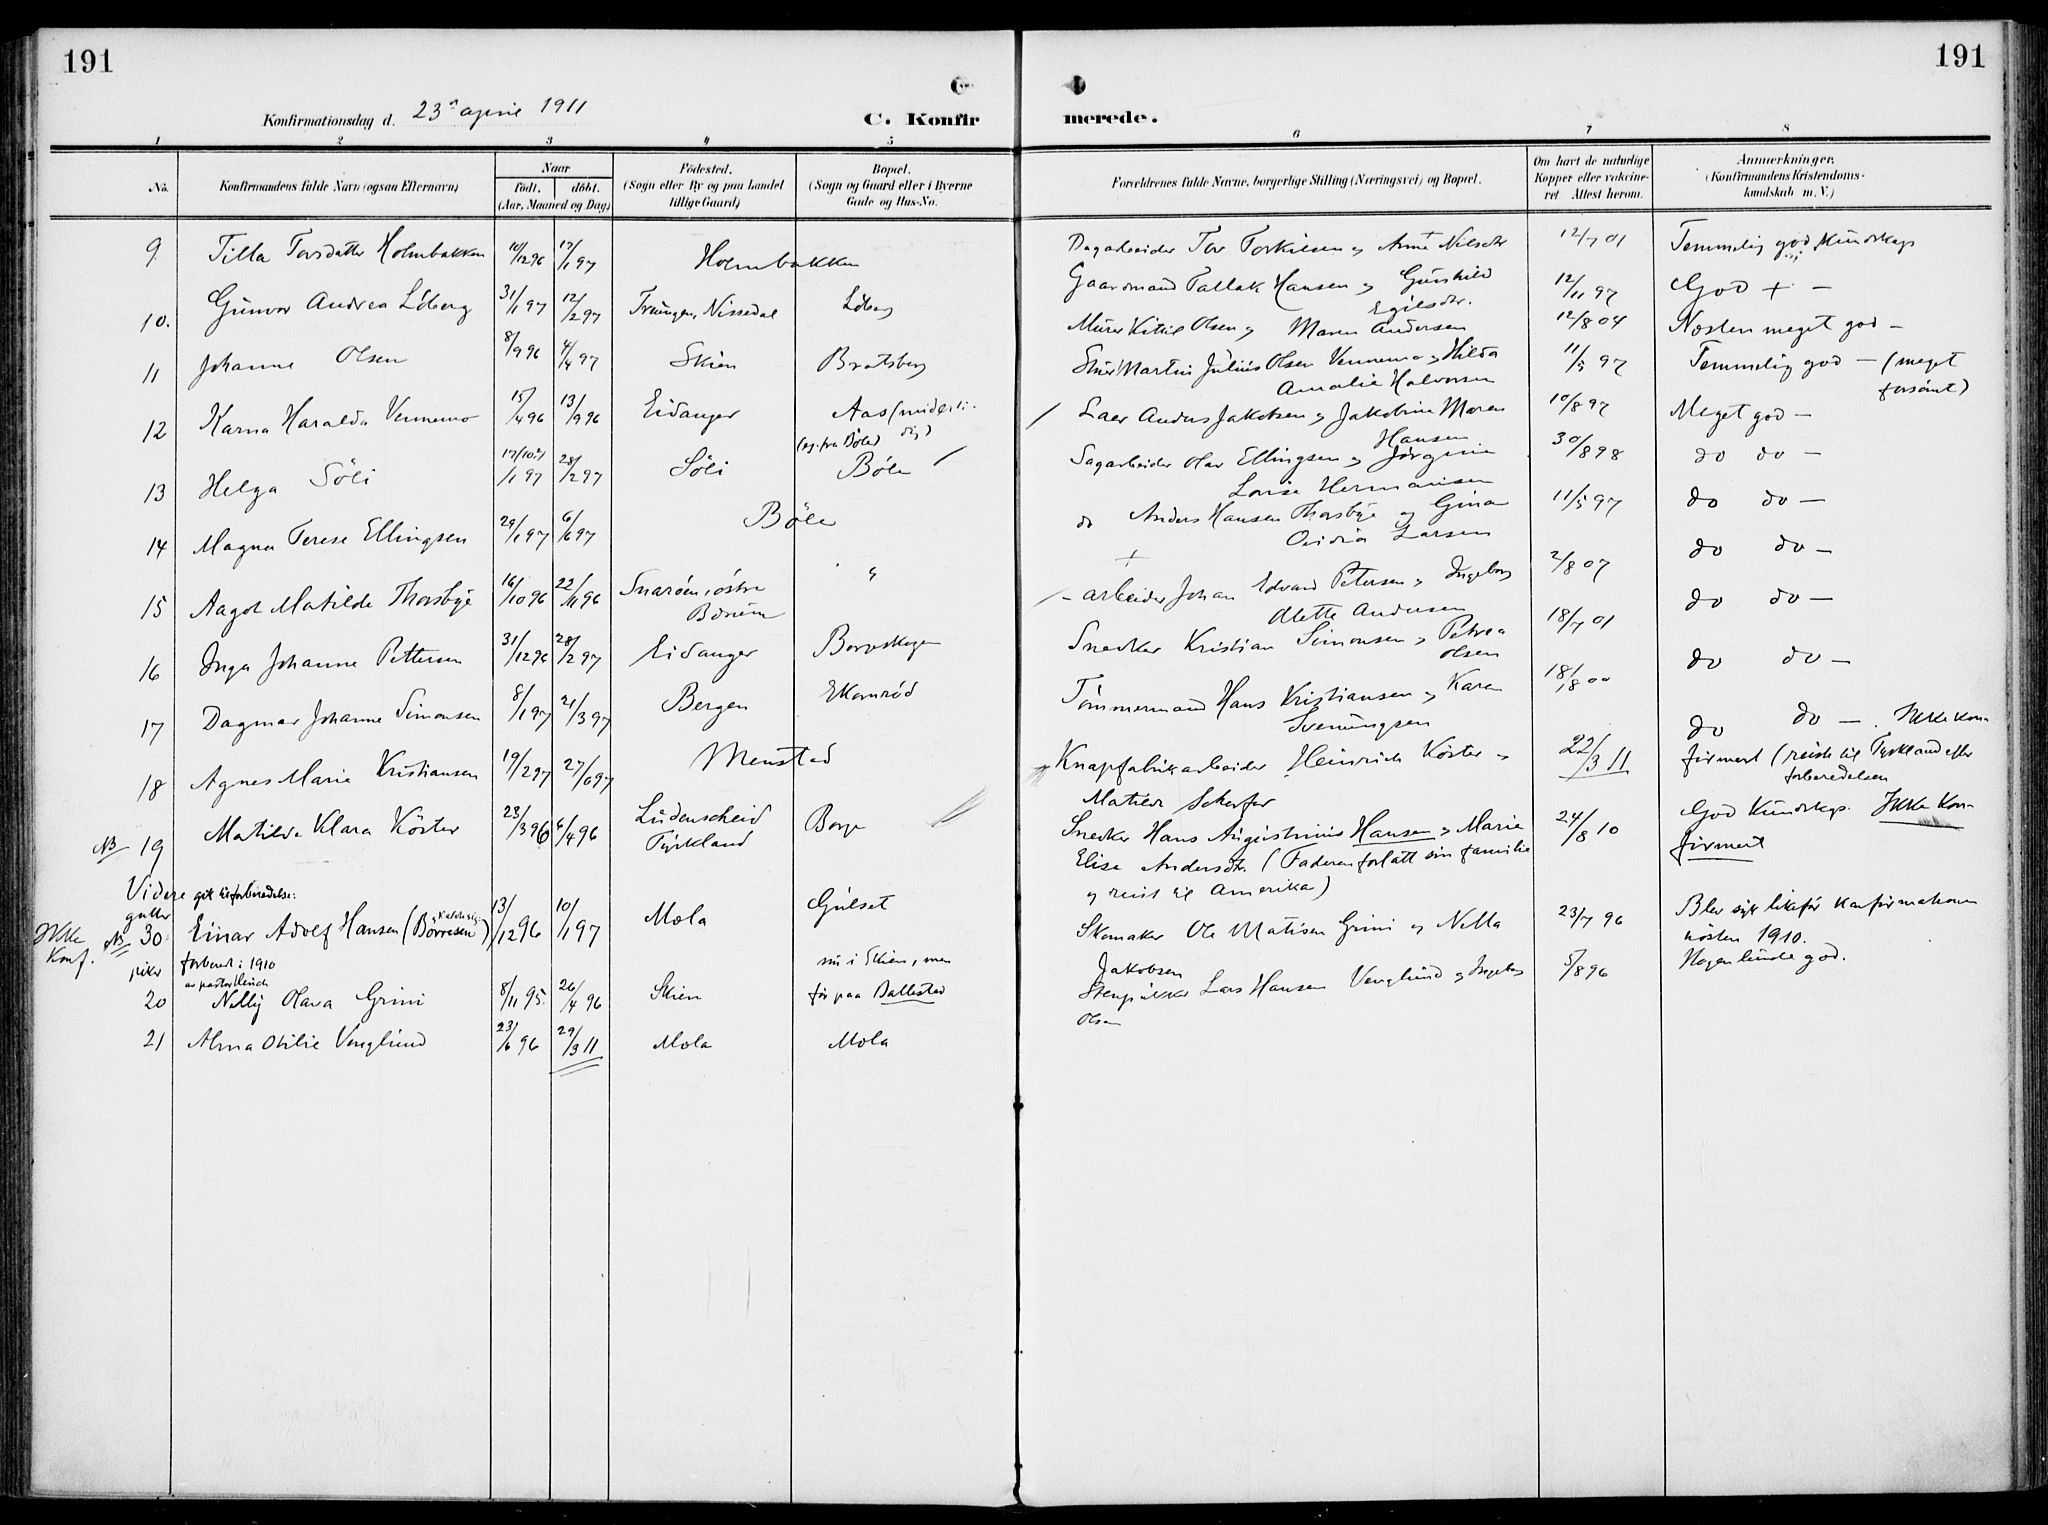 191
191
Konfirmationsdag d. 23de april 1911
C. Konfir
merede.
1 2 3 4 5 6 7 8
No. Konfirmandens fulde Navn (ogsaa Efternavn) Naar födt. döbt. (Aar, Maaned og Dag) Födested. (Sogn eller By og paa Landet tillige Gaard) Bopæl. (Sogn og Gaard eller i Byerne Gade og Hus-No. Forældrenes fulde Navne, borgerlige Stilling (Næringsvei) og Bopæl. Om havt de naturlige Kopper eller vakcineret Attest herom. Anmærkninger. (Konfirmandens Kristendomskundskab m. V.)
9. Tilla Torsdatter Holmbakken 10/12 96 17/1 97 Holmbakken Dagarbeider Tor Torkilsen og Anne Nilsdtr 12/7 01 Temmelig god Kundskap
10. Gunvor Andrea Löberg 31/1 97 12/2 97 Treungen, Nissedal Löberg Gaardmand Tallak Hansen og Gunhild Egilsdtr. 12/11 97 God + —
11 Johanne Olsen 8/9 96 4/4 97 Skien Bratsberg Murer Kittil Olsen og Maren Andersen 12/8 04 Næsten meget god —
12 Karna Haralda Vennemo 15/4 96 13/9 96 Eidanger Aas (midlertidig) Martin Julius Olsen Vennemo og Hilda Amalie Halvorsen 11/5 97 Temmelig god — (meget forsömt)
13 Helga Söli 1/1 97 28/2 97 Söli Böle Anders Jakobsen og Jakobine Maren Hansen 10/8 97 Meget god —
14 Magna Terese Ellingsen 29/1 97 6/6 97 Böle Sagarbeider Olav Ellingsen og Jörgine Lovise Hermansen 30/8 98 do do —
15 Aagot Matilde Thorsbye 16/10 96 22/11 96 Snaröen, östre Bærum " do Anders Hansen Thorsbye og Gina Ovidia Larsen 11/5 97 do do —
16 Inga Johanne Pettersen 31/12 96 28/2 97 Eidanger Borgeskogen - arbeider Johan Edvard Petersen og Ingeborg Alette Andersen 2/8 07 do do —
17 Dagmar Johanne Simonsen 8/1 97 21/3 97 Bergen Ekornröd Snedker Kristian Simonsen og Petrea Olsen 18/7 01 do do —
18 Agnes Marie Kristiansen 19/2 97 27/6 97 Menstad Tömmermand Hans Kristiansen og Karen Svenungsen 18/8 00 do do —
NB 19 Matilde Klara Köster 23/3 96 6/4 96 Lüdenscheid Tyskland Borge Knapfabrikarbeider Heinrich Köster og Matilde Schäfer 22/3 11 do do — . Ikke konfirmert (reiste til Tyskland efter forberedelsen
Videre gik til forberedelse:
gutter
Ikke Konf. NB 30 Einar Adolf Hansen (Börresen) 13/12 96 10/1 97 Mæla Gulset Snedker Hans Augustinus Hansen og Marie Elise Andersdtr. (Faderen forlatt sin familie og reist til Amerika) 24/8 10 God Kundskap. Ikke Konfirmert
forbered: 1910 av pastor Linde
piker
20 Nelly Olava Grini 8/11 95 26/4 96 Skien nu i Skien, men för paa Ballestad Skomaker Ole Matisen Grini og Nella Jakobsen 23/7 96 Blev syk likeför konfirmationen hösten 1910. Nogenlunde god.
21 Alma Otilie Venglund 23/6 96 29/3 11 Mæla Mæla Lars Hansen Venglund og Ingeborg Olsen 5/8 96